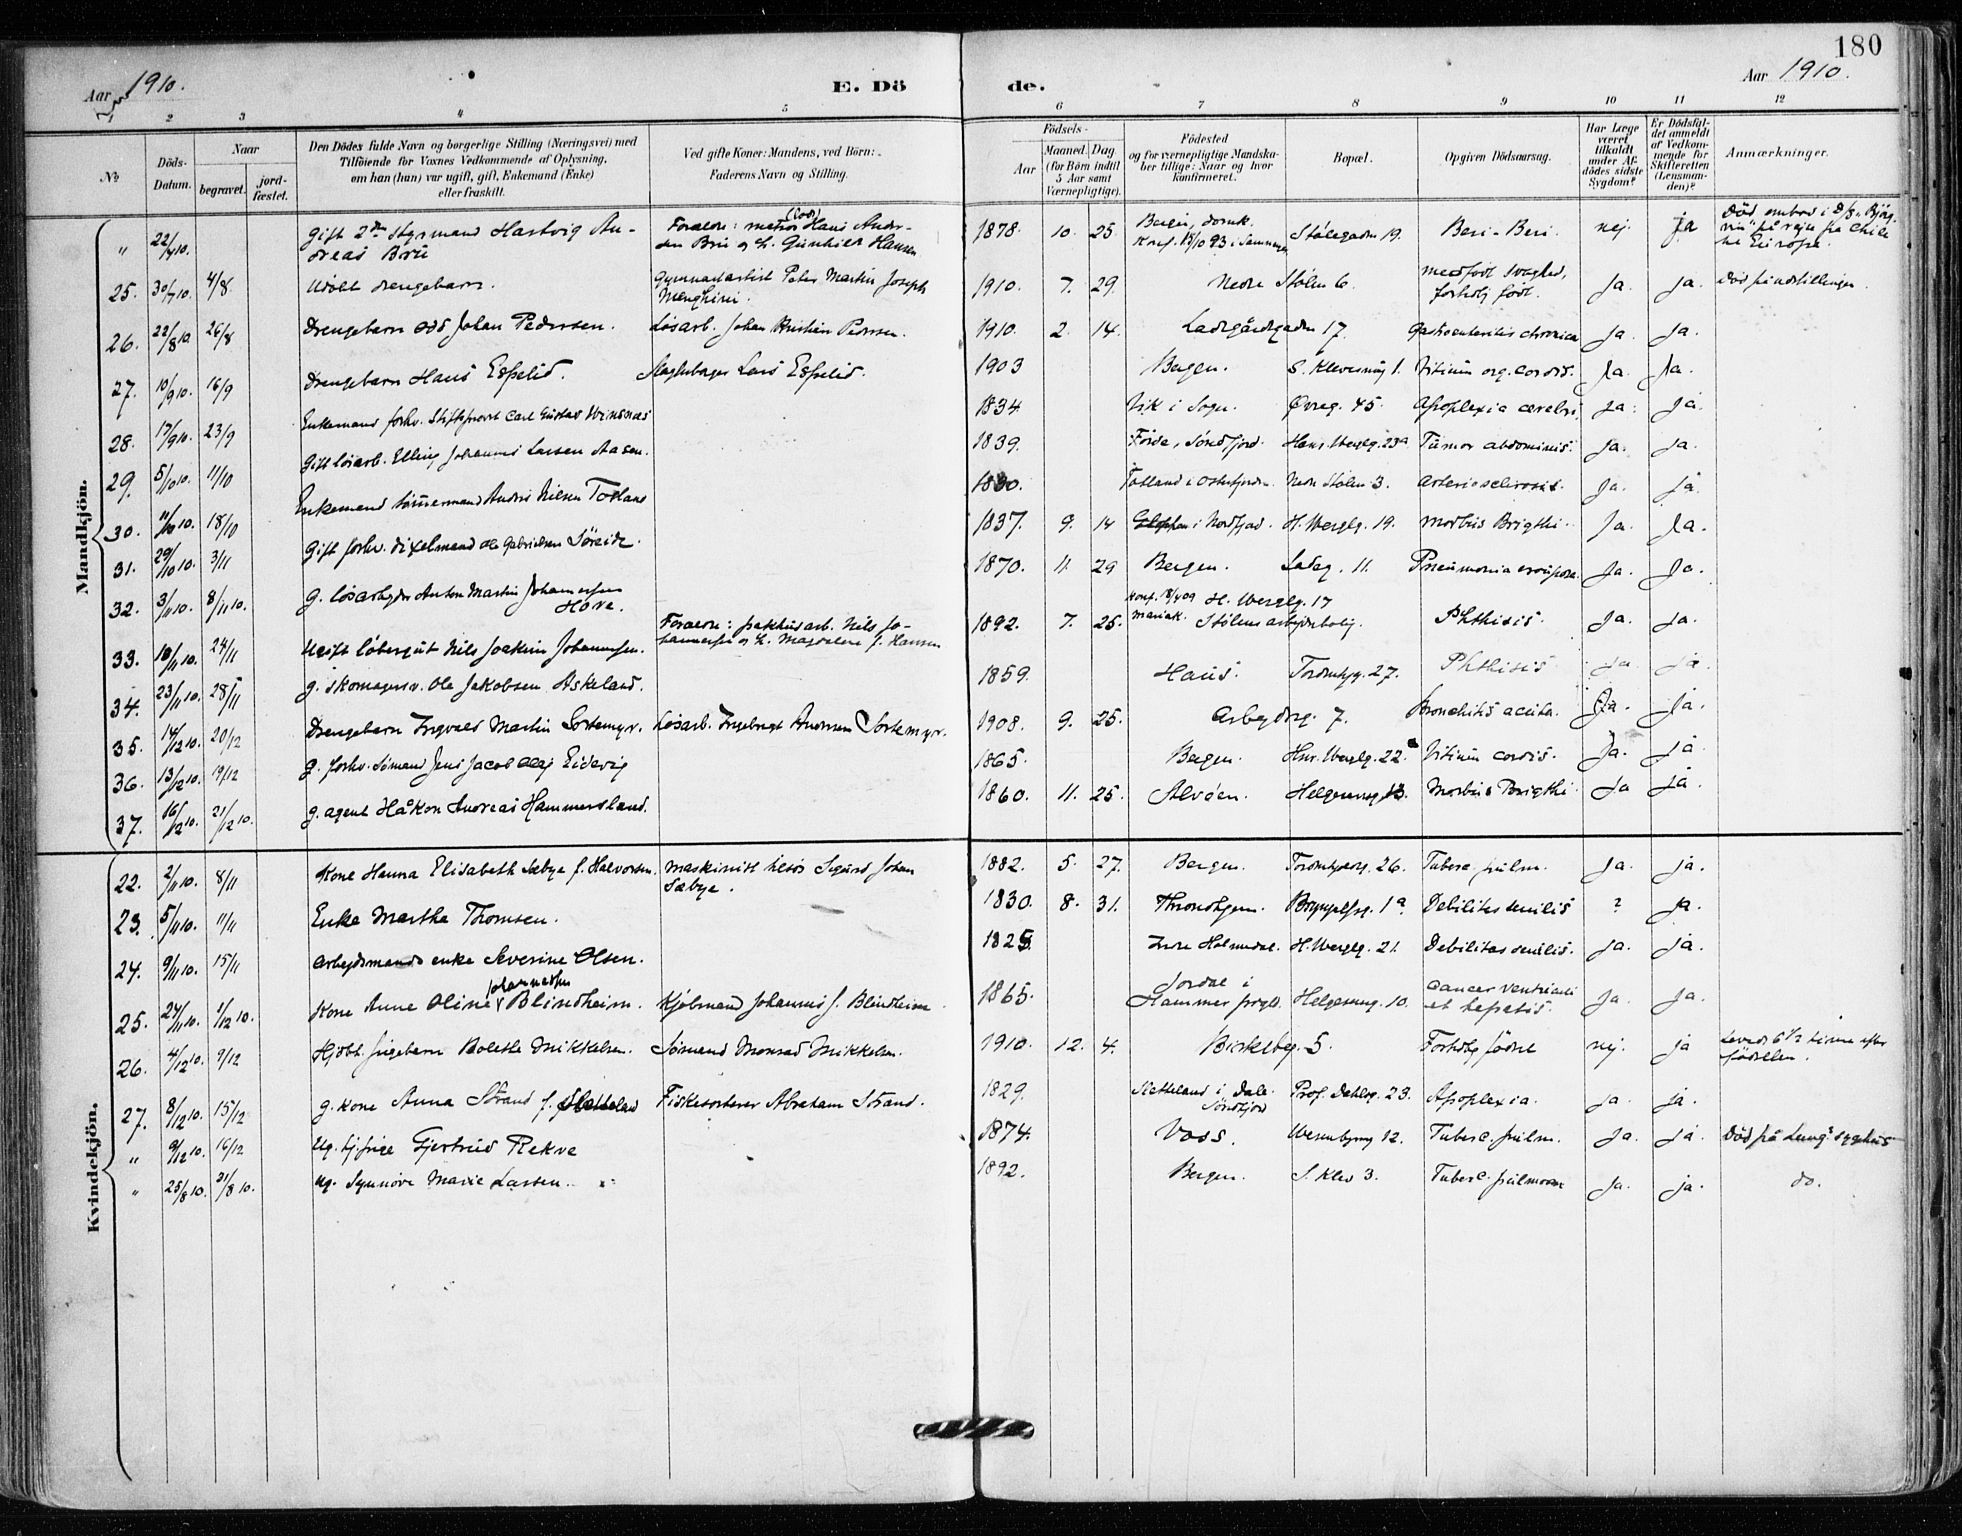 180
Aar 1910.
E. Döde.
Aar 1910.
1 2 3 4 5 6 7 8 9 10 11 12
No
Döds-Datum.
Naar
begravet.
jord-fæstet.
Den Dödes fulde Navn og borgerlige Stilling (Næringsvei) med
Tilföiende for Voxnes Vedkommende af Oplysning,
om han (hun) var ugift, gift, Enkemand (Enke)
eller fraskilt.
Ved gifte Koner: Mandens, ved Börn:
Faderens Navn og Stilling.
Födsels-
Aar
Maaned. Dag
(for Börn indtil
5 Aar samt
Værnepligtige).
Födested
og for værnepligtige Mandska-
ber tillige: Naar og hvor
konfirmeret.
Bopæl.
Opgiven Dödsaarsag.
Har Læge
været
tilkaldt
under Af-
dödes sidste
Sygdom?
Er Dödsfal-
det anmeldt
af Vedkom-
mende for
Skifteretten
(Lensman-
den)?
Anmærkninger.
Mandkjön.
" 22/4 10. Gift 2den Styrmand Hartvig An-
dreas Brü Forældre: Hans Ander-
sen Brü og h. Gunhild Hansen 1878. 10. 25. Bergen, domk.
Konf. Stölegaden 19. Beri-Beri. nej. ja Död ombord i D/S "Björg-
vin" på reise fra Chile
til Europa.
25. 30/7 10. 4/8. Udöbt drengebarn. Gymnastartist Peter Martin Joseph
Menghini. 1910. 7. 29. Nedre Stölen 6. medfödt svaghed,
fortidlig födt. Ja. ja. Död på udstillingen
26. 22/8 10 26/8 Drengebarn Odd Johan Pedersen. Lösarb. Johan Kristian Pedersen. 1910. 2. 14. Ladegårdsgaden 17. Gastroenteritis chronica Ja. Ja.
27. 10/9 10. 16/9 Drengebarn Hans Espelid. Lars Espelid. 1903 Bergen. S. Klevesmug 1. Vitium org. cordis. Ja. Ja.
28. 17/9 10. 23/9 Enkemand forhv. Stiftsprovst Carl Gustav Winsnes 1834 Vik i Sogn. Øvreg. 45. Apoplexia cerebri Ja. Ja.
29. 5/10 10. 11/10 Gift lösarb. Elling Johannes Larsen Aasen. 1839. Förde, Söndfjord. Henr. Wergelg. 23a Tumor abdominis. Ja. Ja.
30. 11/10 10. 18/10 Enkemand tömmermand Anders Nilsen Totland 1830. Totland i Osterfjorden. Nedre Stölen 3. Arteriosclerosis. Ja. Ja
31. 29/10 10. 3/11 Gift forhv. dixelmand Ole Gabrielsen Söreide. 1837. 9. 14 Gloppen i Nordfjord. H. Wergelg. 19. Morbus Brigthi. Ja. Ja.
32. 3/11 10. 8/11 10. g. lösarbejder Anton Martin Johannessen
Hove. 1870. 11. 29 Bergen. Ladeg. 11. Pneumonia crouposa. Ja. Ja.
33. 18/11 10. 24/11 Ugift löbergut Nils Joakim Johannessen. Forældre: pakhusarb. Nils Jo-
hannessen og h. Magdalene f. Hansen 1892. 7. 25. konf. 18/4 09
Mariak. H. Wergelg. 17
Stölens arbejderbolig. Phthisis. Ja. ja.
34. 23/11 10. 28/11 g. skomagersv. Ole Jakobsen Askeland. 1859. Haus. Tordenskg. 27. Phthisis Ja. ja.
35. 14/12 10. 20/12 Drengebarn Ingvald Martin Sortemyr. Lösarb. Ingebrigt Andersen Sortemyr. 1908. 9. 25. Arbejderg. 7. Bronchitis acuta. Ja. Ja.
36. 13/12 10. 19/12 g. forhv. Sömand Jens Jacob Olaj Eidevig 1865. Bergen. Henr. Wergelg. 22. Vitium cordis. Ja. ja
37. 16/12 10. 21/12 10. g. agent Håkon Andreas Hammersland. 1860. 11. 25. Alvöen. Helgesensg 13. Morbus Brigthi. Ja ja.
Kvindekjön.
22. 2/11 10. 8/11 Kone Hanna Elisabeth Sæbye f. Halvorsen. Maskinist Sigurd Johan
Sæbye. 1882. 5. 27. Bergen. 26. Tuberc. pulm. Ja. ja.
23. 5/11 10. 11/11 Enke Martha Thomsen. 1830. 8. 31. Throndhjem. 1a. Debilitas senilis ? Ja.
24. 9/11 10. 15/11 Arbejdsmands enke Severine Olsen. 1825. Indre Holmedal. H. Wergelg. 21. Debilitas senilis. Ja. ja.
25. 24/11 10. 1/12 10. Kone Anne Oline Johannesen Blindheim. Kjölmand Johannes J. Blindheim 1865. Jordal i
Hammer prgld. Helgesensg. 10. Cancer ventriculi
et hepatis. Ja. Ja.
26. 4/12 10. 9/12 Hjdbt. pigebarn Bolethe Mikkelsen. Sömand Monrad Mikkelsen. 1910. 12. 4. Birkebg. 5. Fortidlig födsel nej. ja Levede 6 1/2 time efter
födselen.
27. 8/12 10. 15/12 g. kone Anna Strand f. Sletteland Fiskesorterer Abraham Strand. 1829. Sletteland i Dale
Söndfjord Prof. Dahlsg. 23. Apoplexia. ja. ja.
" 9/12 10. 16/12 Ug. tj.pige Gjertrud Rekve 1874. Voss. 12. Tuberc. pulm. Ja. ja. Död på Lung. sygehus
" 25/8 10. 31/8 10. Ug. Synnöve Marie Larsen. 1892. Bergen. S. Klev 3. Tuberc. pulmonum Ja. ja. do.